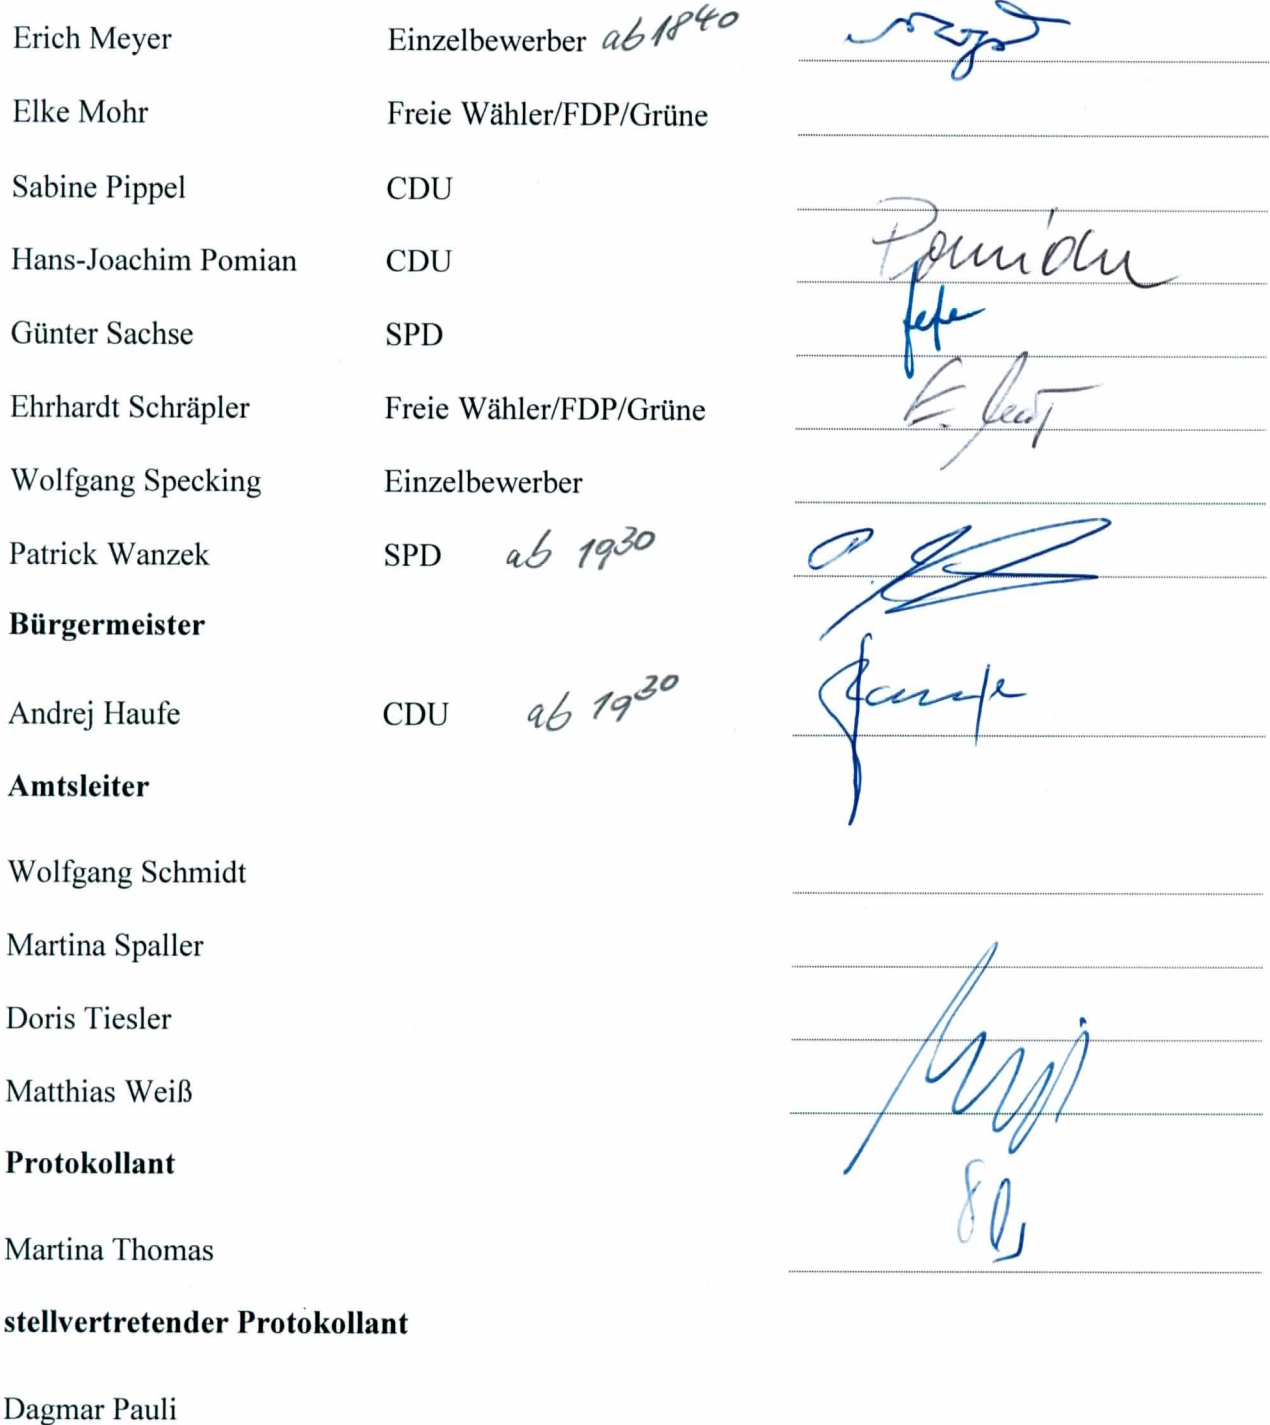 Erich Meyer Einzelbewerber ab 18⁴⁰
Elke Mohr Freie Wähler/FDP/Grüne
Sabine Pippel CDU
Hans-Joachim Pomian CDU Pomian
Günter Sachse SPD
Ehrhardt Schräpler Freie Wähler/FDP/Grüne
Wolfgang Specking Einzelbewerber
Patrick Wanzek SPD ab 19³⁰
Bürgermeister
Andrej Haufe CDU ab 19³⁰
Amtsleiter
Wolfgang Schmidt
Martina Spaller
Doris Tiesler
Matthias Weiß
Protokollant
Martina Thomas
stellvertretender Protokollant
Dagmar Pauli